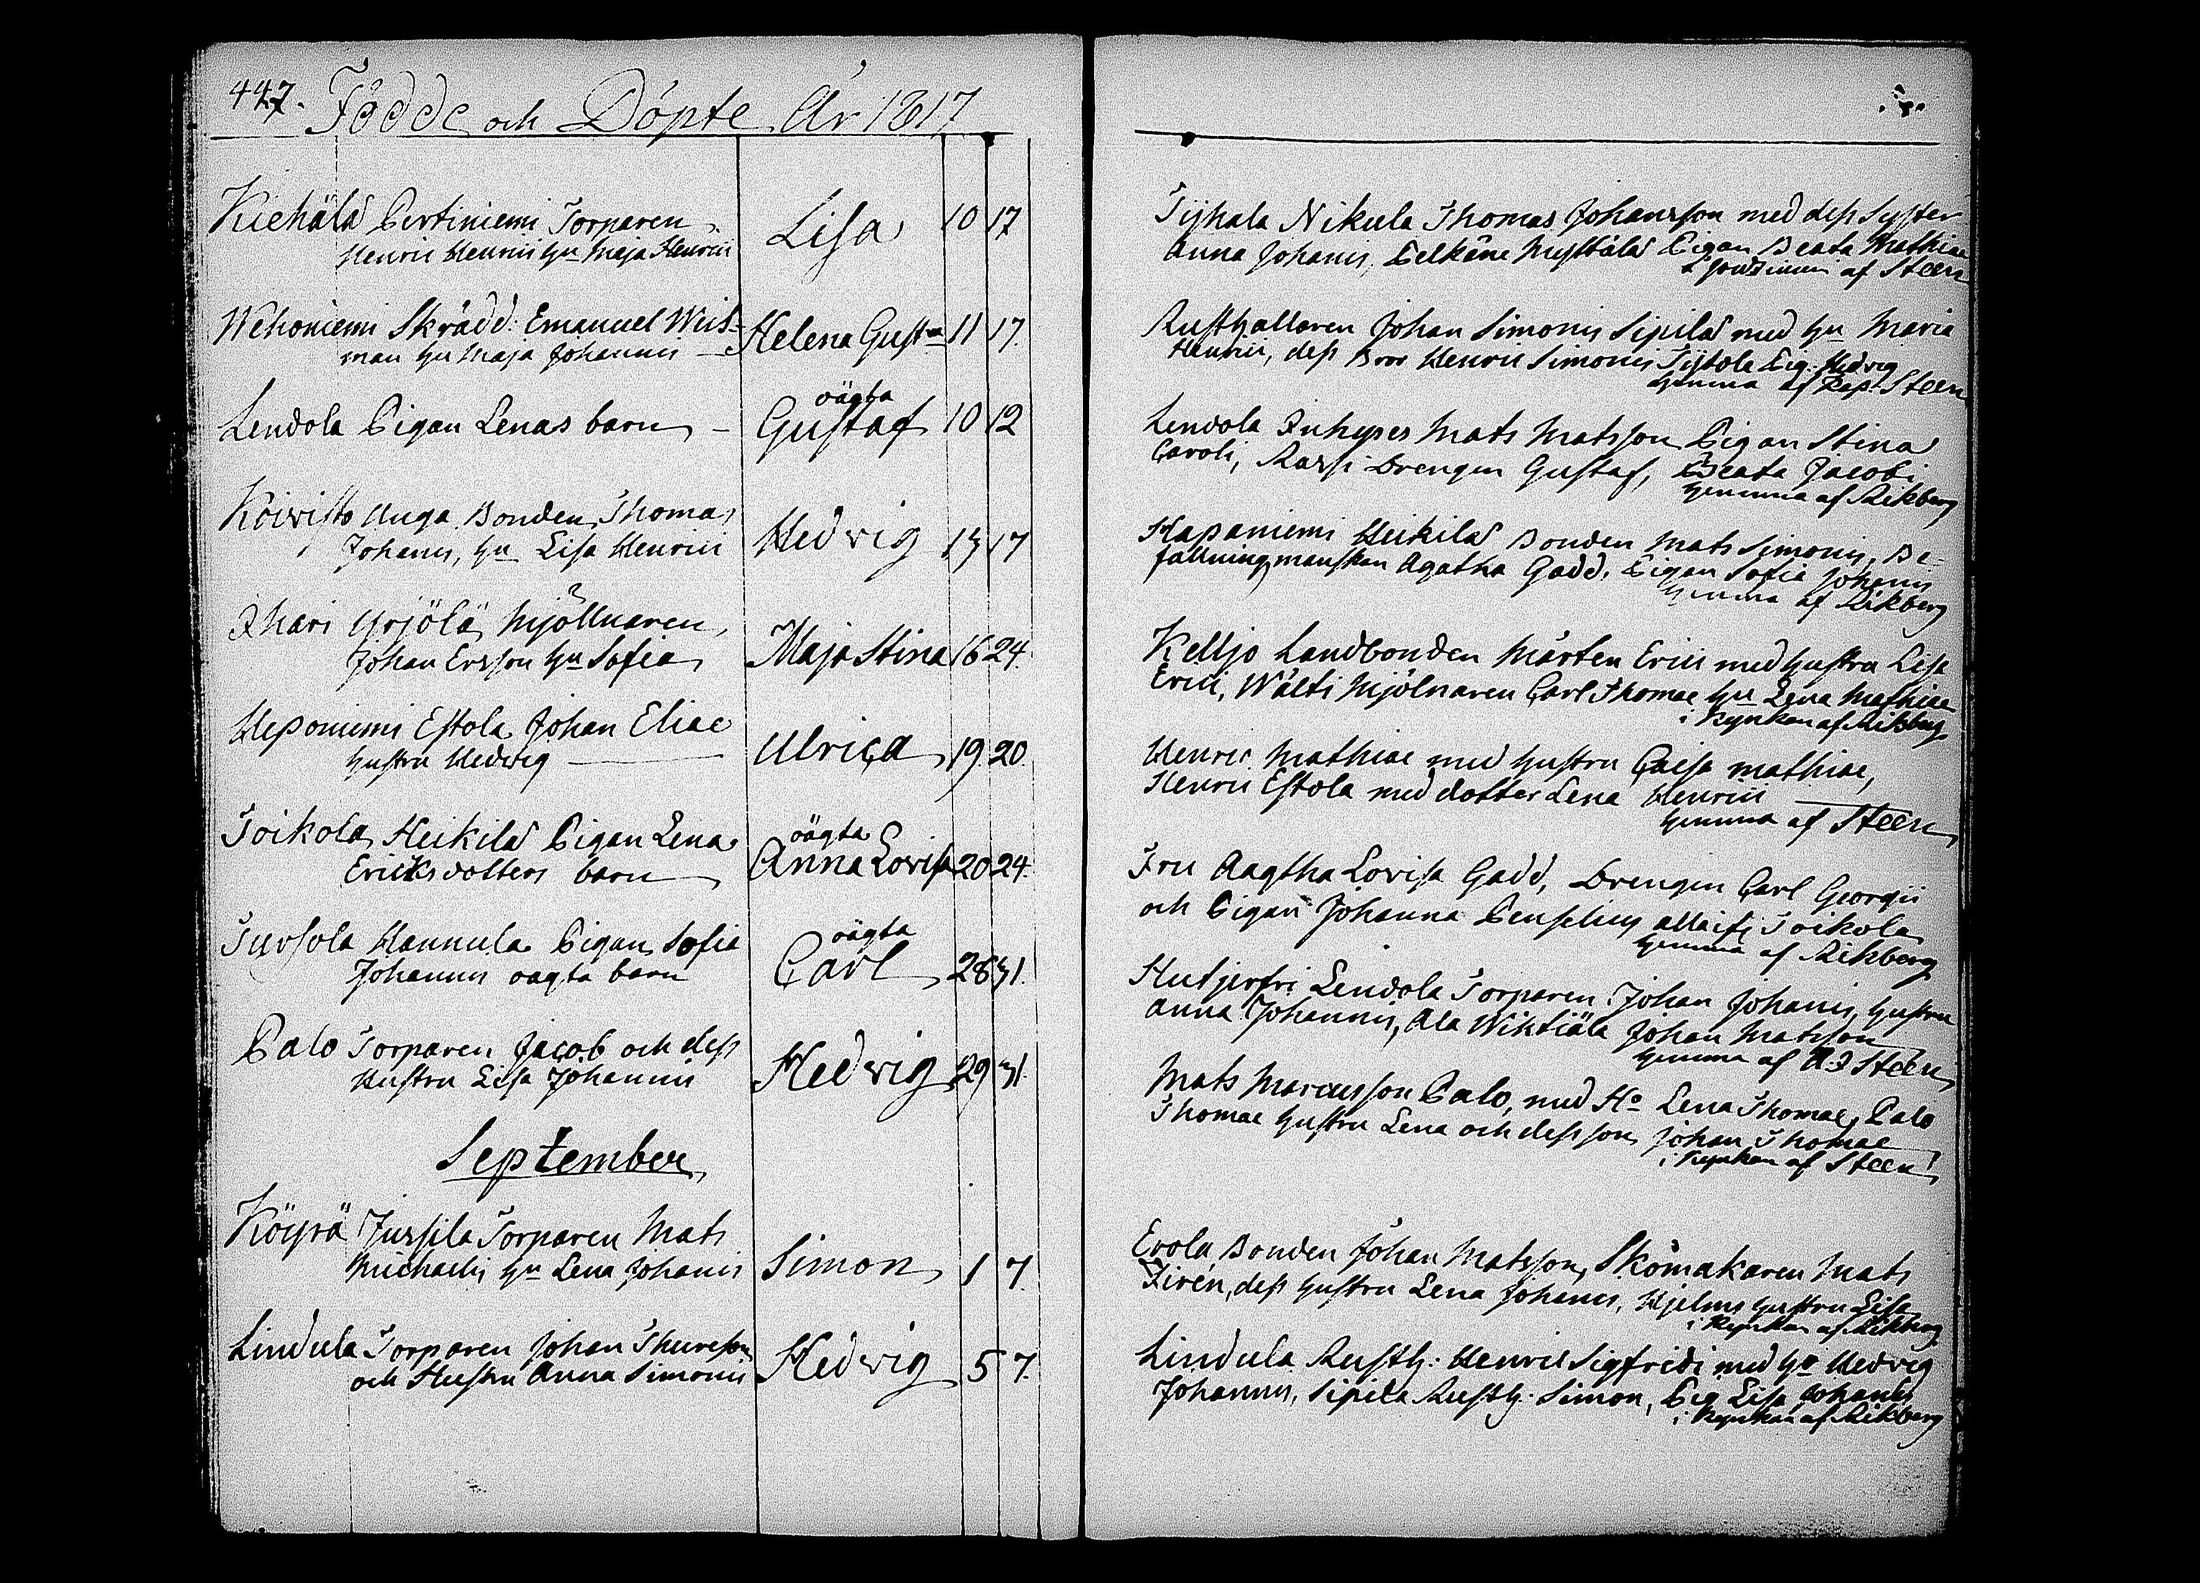 447. Födde och Döpte År 1817
Kiehälä Pertiniemi Torparen
Henric Henrici hu Maja Henrici
Lisa 10 17
Wehoniemi Skrädd: Emanuel Weis-
man hu Maja Johannis
Helena Gust-a 11 17.
Lendola Pigan Lenas barn
oägta
Gustaf 10 12
Koivisto Anga Bonden Thomas
Johanis, hu Lisa Henrici
Hedvig 13 17
Ihari Yrjölä Mjöllnaren
Johan Ersson hu Sofia
Maja Stina 16 24.
Heponiemi Estola Johan Eliae
hustru Hedvig
Ulrica 19. 20.
Toikola Heikilä Pigan Lena
Ericksdotters barn
oägta
Anna Lovisa 20 24.
Tursola Hannula Pigan Sofia
Johannis oagta barn
oägta
Carl 28 31.
Palo Torparen Jacob och dess
Hustru Lisa Johannis
Hedvig 29 31.
September
Köyrä Jussila Torparen Mats
Michaelis hu Lena Johanis
Simon 1 7.
Lindula Torparen Johan Thuresson
och Hustru Anna Simonis
Hedvig 5 7.
Tiihala Nikula Thomas Johansson med dess Syster
Anna Johanis, Pelkäne Mysttälä Pigan Beata Mathiae
af Steen
Rusthallaren Johan Simonis Sipilä med hu Maria
Henrici, dess Bror Henric Simonis Tijtola Pig: Hedvig
hemma af Kap. Steen
Lendola Inhyses Mats Matsson Pigan Stina
Caroli, Rassi Drengen Gustaf, Beata Jacobi
hemma af Rikberg
Hapaniemi Heikilä Bonden Mats Simonis, Be-
fallningmanskan Agatha Gadd, Pigan Sofia Johanis
hemma af Rikberg
Keljo Landbonden Mårten Erici med hustru Lisa
Erici, Wälti Mjölnaren Carl Thomae hu Lena Mathiae
i Kyrkan af Rikberg
Henric Mathiae med hustru Caisa Mathiae,
Henric Estola med dotter Lena Henrici
hemma af Steen
Fru Aagtha Lovisa Gadd, Drengen Carl Georgii
och Pigan Johanna allaifr Toikola
hemma af Rikberg
Hutjerfri Lendola Torparen Johan Johanis, hustru
Anna Johannis, Ala Wiktiäla Johan Matsson
hemma af A J Steen
Mats Marcusson Palo, med Ho Lena Thomae, Palo
Thomae hustru Lena och dess son Johan Thomae
i Kyrkan af Steen
Erola Bonden Johan Matsson, Skomakaren Mats
Firén, dess hustru Lena Johanis, Hjelms hustru Lisa
i Kyrkan af Rikberg
Lindula Rusth: Henric Sigfridi med hu Hedvig
Johannis, Sipilä Rusth: Simon, Pig Lisa Johanis
i Kyrkan af Rikberg